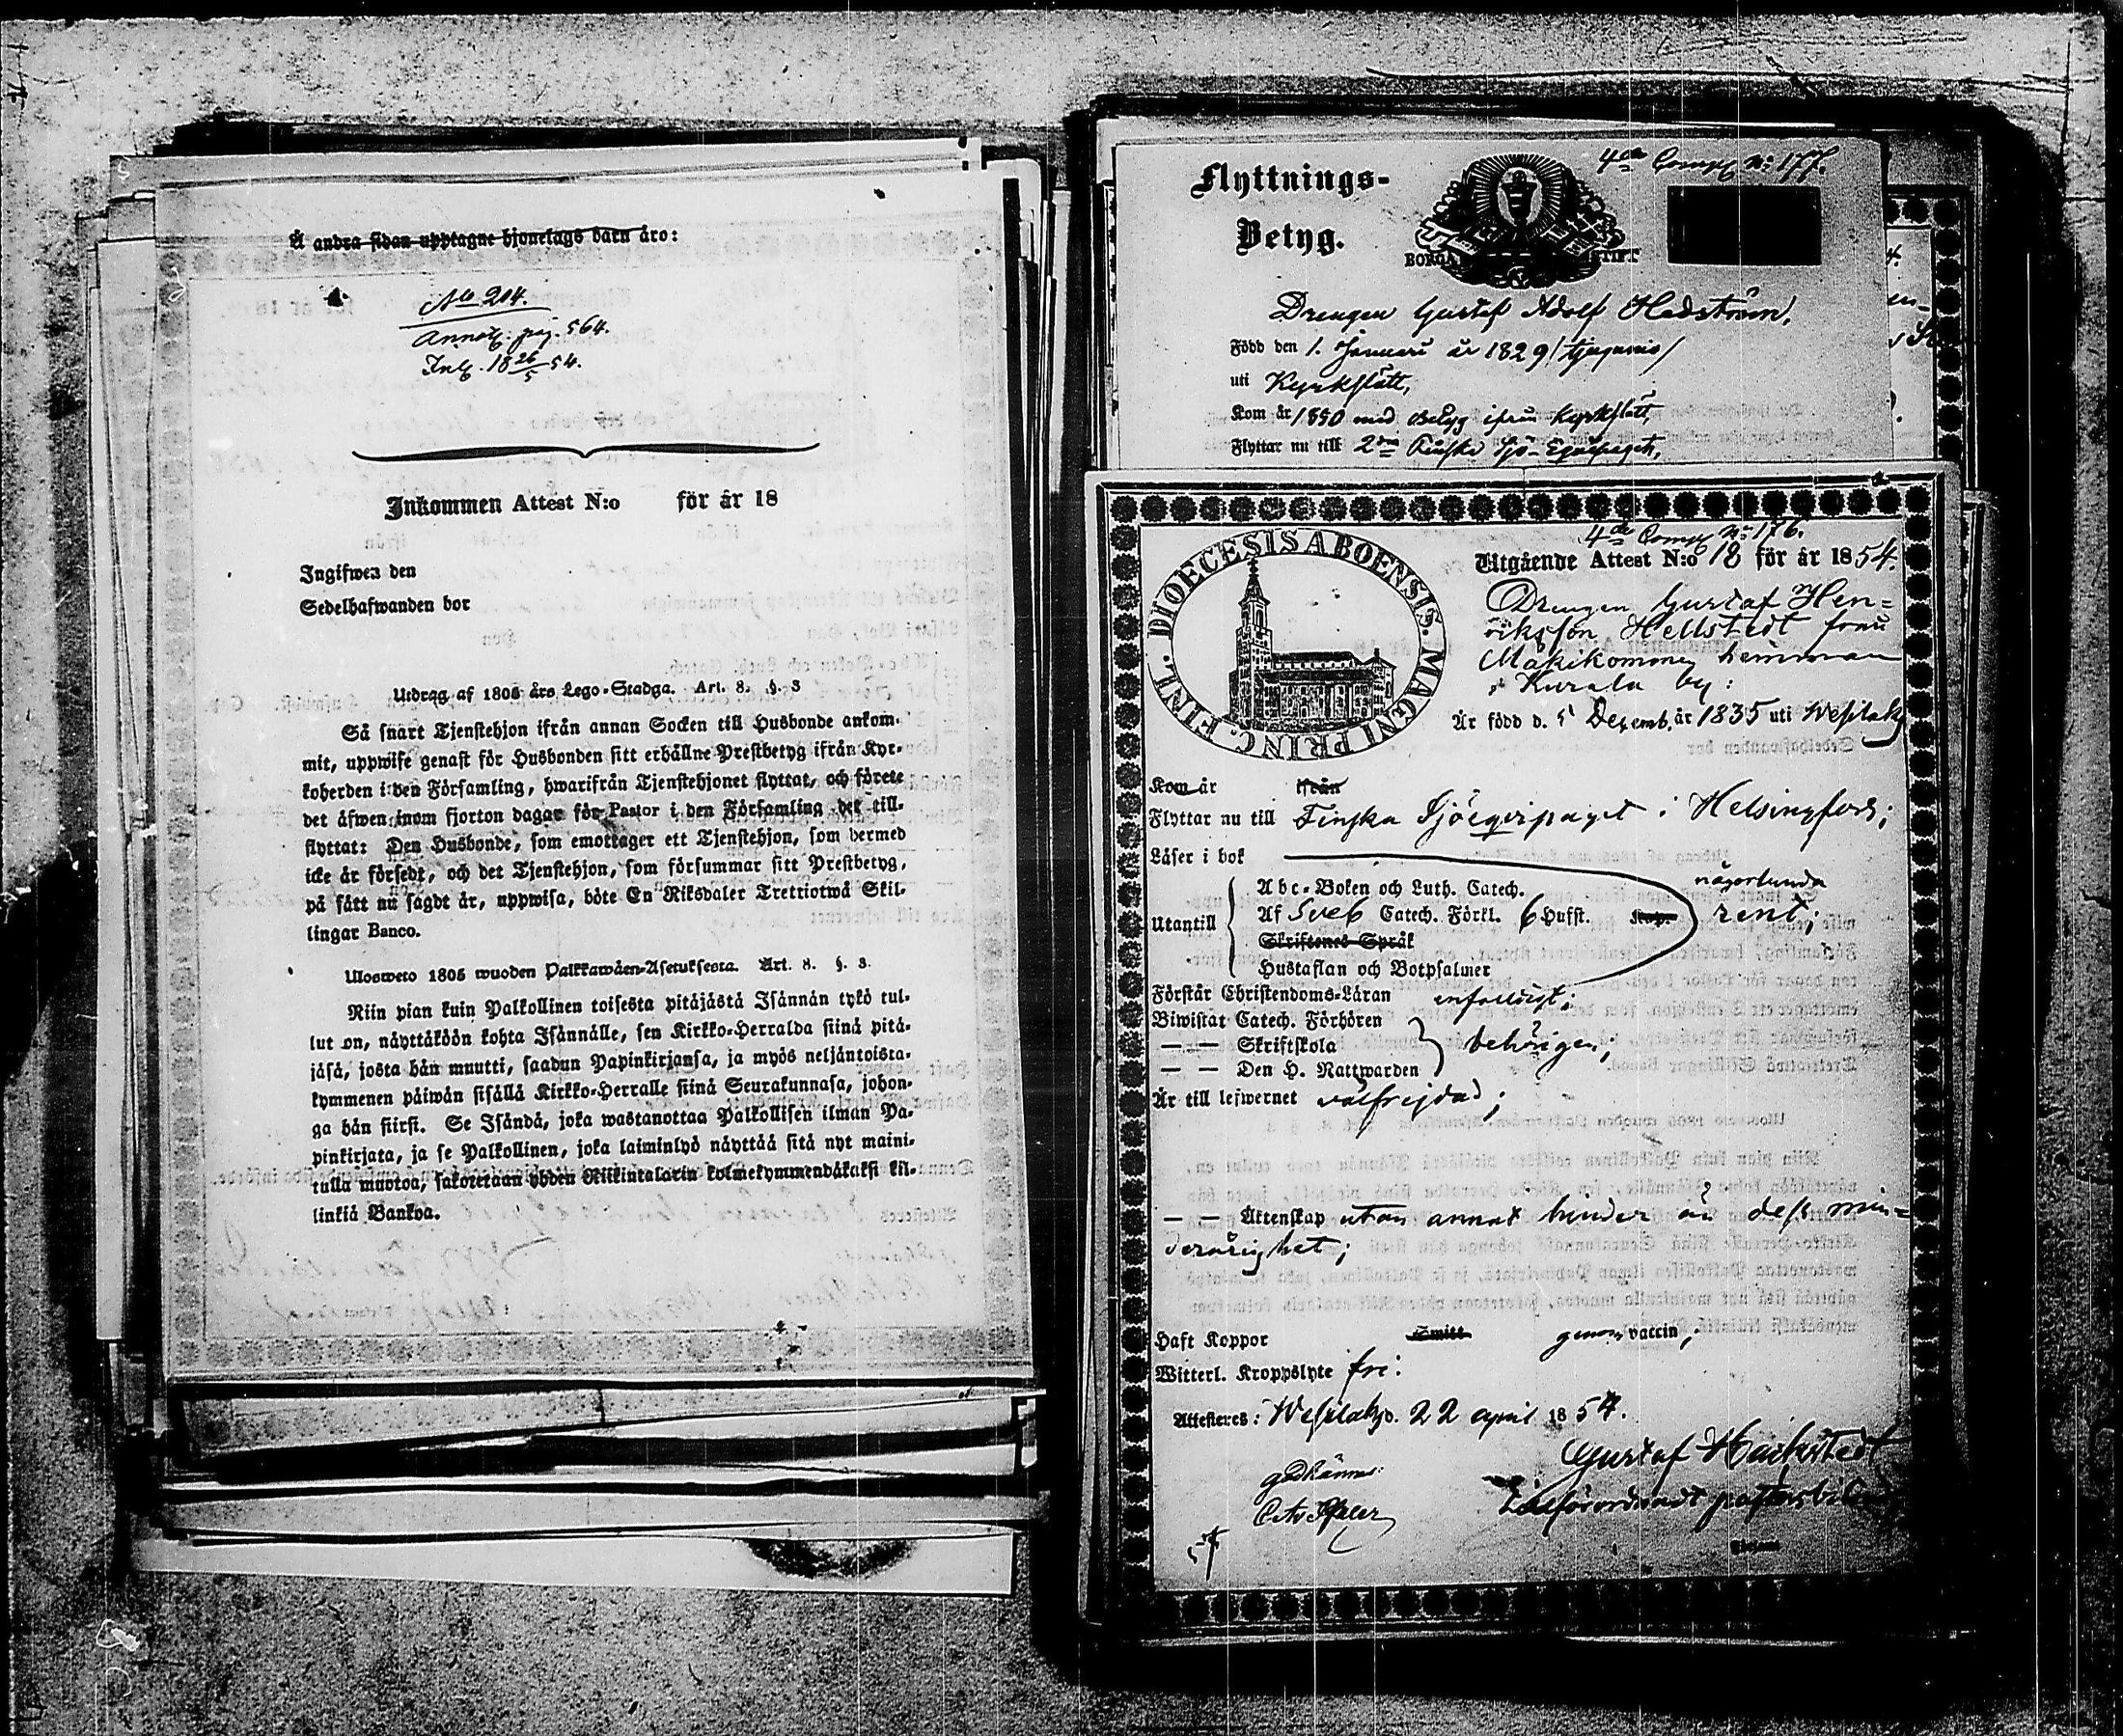 Å andra sidan upptagne hjonelags barn äro:
No 204.
Annot. pag. 564.
Ink. 18 26/5 54.
Inkommen Attest N:o för år 18
Ingifwen den
Sedelhafwanden bor
Utdrag af 1805 års Lego-Stadga. Art. 8. §. 3
Så snart Tjenstehjon ifrån annan Socken till Husbonde ankom-
mit, uppwise genast för Husbonden sitt erhållne Prestbetyg ifrån Kyr-
koherden i den Församling, hwarifrån Tjenstehjonet flyttat, och förete
det äfwen inom fjorton dagar för Pastor i den Församling det till-
flyttat: Den Husbonde, som emottager ett Tjenstehjon, som dermed
icke är försedt, och det Tjenstehjon, som försummar sitt Prestbetyg,
på sätt nu sagdt är, uppwisa, böte En Riksdaler Trettiotwå Skil-
lingar Banco.
Ulosweto 1805 wuoden Palkkawäen-Asetuksesta. Art. 8. §. 3.
Niin pian kuin Palkollinen toisesta pitäjästä Isännän tykö tul-
lut on, näyttäköön kohta Isännälle, sen Kirkko-Herralda siinä pitä-
jäsä, josta hän muutti, saadun Papinkirjansa, ja myös neljäntoista-
kymmenen päiwän sisällä Kirkko-Herralle siinä Seurakunnasa, johon-
ga hän siirst. Se Isändä, joka wastanottaa Palkollisen ilman Pa-
pinkirjata, ja se Palkollinen, joka laiminlyö näyttää sitä nyt maini-
tulla muotoa, sakotetaan yhden Riikintalarin kolmekymmendäkaksi kil-
linkiä Bankoa.
4de Comp No 177.
Flyttnings-
Betyg.
BORGÅ STIFT
Drengen Gustaf Adolf Hedström,
Född den 1. Januari år 1829 /tjugunio/
uti Kyrkslätt,
Kom år 1850 med Betyg ifrån Kyrkslätt,
Flyttar nu till 2dra Finska Sjö-Equipaget,
4de Comp No 176.
DIOECESIS ABOENSIS. MAGNI PRINC. FINL.
Utgående Attest N:o 18 för år 1854.
Drengen Gustaf Hen-
riksson Hellstedt från
hemman
i Kurala by:
Är född d. 5 Dezemb. år 1835 uti
Kom år ifrån
Flyttar nu till Finska Sjöequipaget i Helsingfors;
Läser i bok
Utantill
Abc-Boken och Luth. Catech.
Af Sveb Catech. Förkl. 6 Hufst. Kap.
Skriftenes Språk
Hustaflan och Botpsalmer
någorlunda
rent;
Förstår Christendoms-Läran enfaldigt;
Biwistat Catech. Förhören
— — Skriftskola
— — Den H. Nattwarden
behörigen;
Är till lefwernet välfrejdad;
— — Äktenskap utan annat hinder än dess min-
derårighet;
Haft Koppor Smitt genom vaccin,
Witterl. Kroppslyte fri:
Attesteras: d. 22 april 1854.
Gustaf
godkännes: